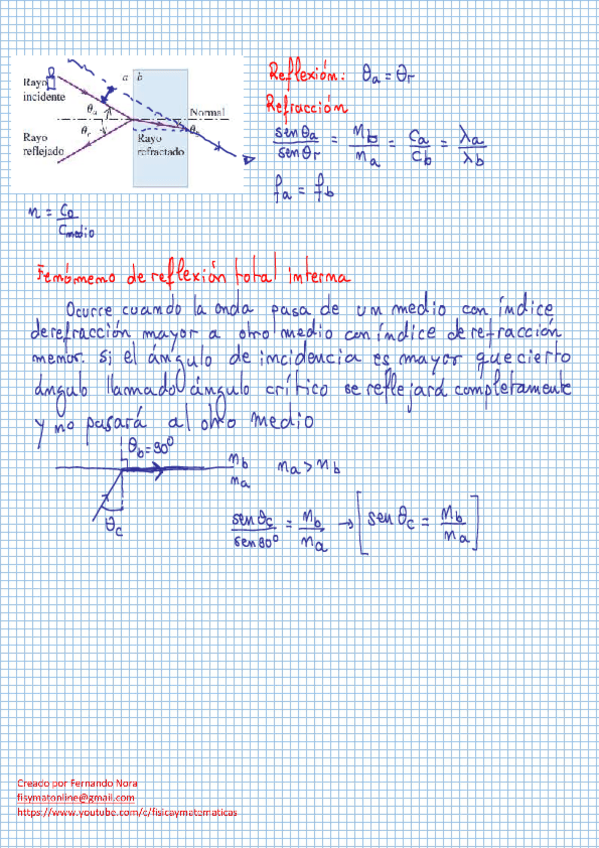 Rayo incidente
a b
θa
θr
Normal
θb
Rayo reflejado
Rayo refractado
Reflexión: θa = θr
Refracción
sen θa / sen θr = nb / na = ca / cb = λa / λb
fa = fb
n = c0 / cmedio
Fenómemo de reflexión total interma
Ocurre cuando la onda pasa de un medio con índice
de refracción mayor a otro medio con índice de refracción
memor. Si el ángulo de imcidencia es mayor que cierto
ángulo llamado ángulo crítico se reflejará completamente
y no pasará al otro medio
θb = 90°
nb
na
na > nb
θc
sen θc / sen 90° = nb / na → [sen θc = nb / na]
Creado por Fernando Nora
fisymatonline@gmail.com
https://www.youtube.com/c/fisicaymatematicas